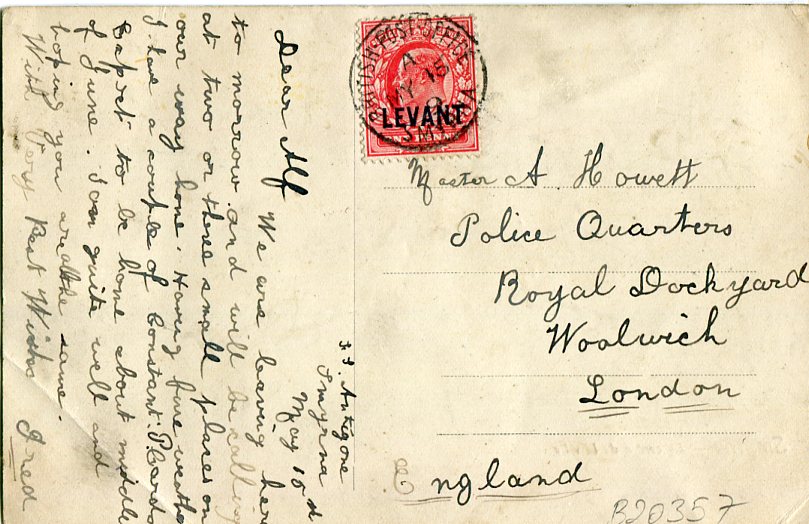 S.S. Antigone
Smyrna
May 15th
Dear Alf
We are leaving here
to morrow and will be calling
at two or three small places on
our way home. Having fine weather
I have a couple of Constant. P. Cards
Expect to be home about middle
of June. I am quite well and
hoping you are the same.
With Very Best Wishes Fred
BRITISH POST OFFICE
A
MY 15
SMYRNA
LEVANT
ONE PENNY
Master A. Howett
Police Quarters
Royal Dockyard
Woolwich
London
England
B20357